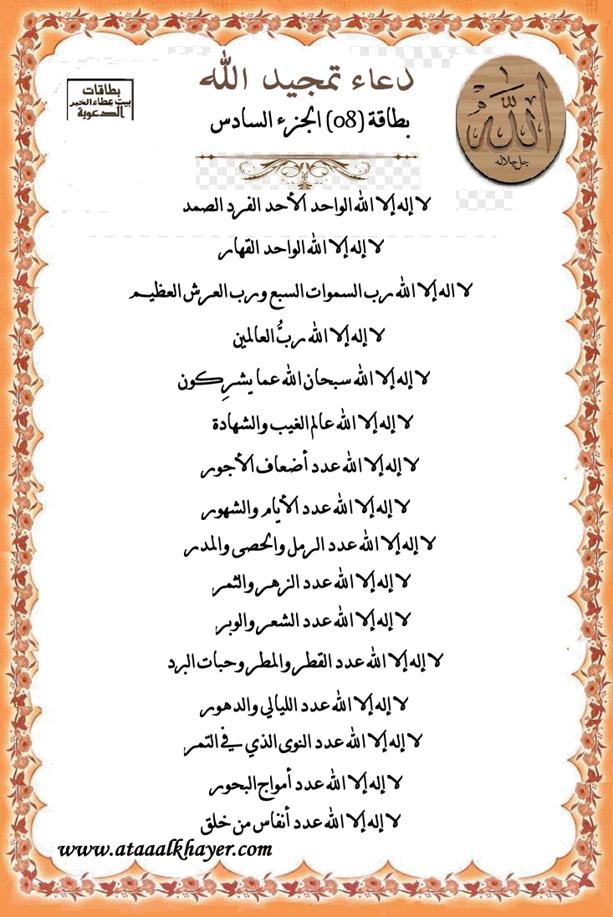 دعاء تمجيد الله
بطاقة (08) الجزء السادس
بطاقات
بيت عطاء الخير
الدعوية
الله
جل جلاله
لا إله إلا الله الواحد الأحد الفرد الصمد
لا إله إلا الله الواحد القهار
لا اله إلا الله رب السموات السبع ورب العرش العظيم
لا إله إلا الله ربُّ العالمين
لا إله إلا الله سبحان الله عما يشرِكون
لا إله إلا الله عالم الغيب والشهادة
لا إله إلا الله عدد أضعاف الأجور
لا إله إلا الله عدد الأيام والشهور
لا إله إلا الله عدد الرمل والحصى والمدر
لا إله إلا الله عدد الزهر والثمر
لا إله إلا الله عدد الشعر والوبر
لا إله إلا الله عدد القطر والمطر وحبات البرد
لا إله إلا الله عدد الليالي والدهور
لا إله إلا الله عدد النوى الذي في التمر
لا إله إلا الله عدد أمواج البحور
لا إله إلا الله عدد أنفاس من خلق
www.ataaalkhayer.com